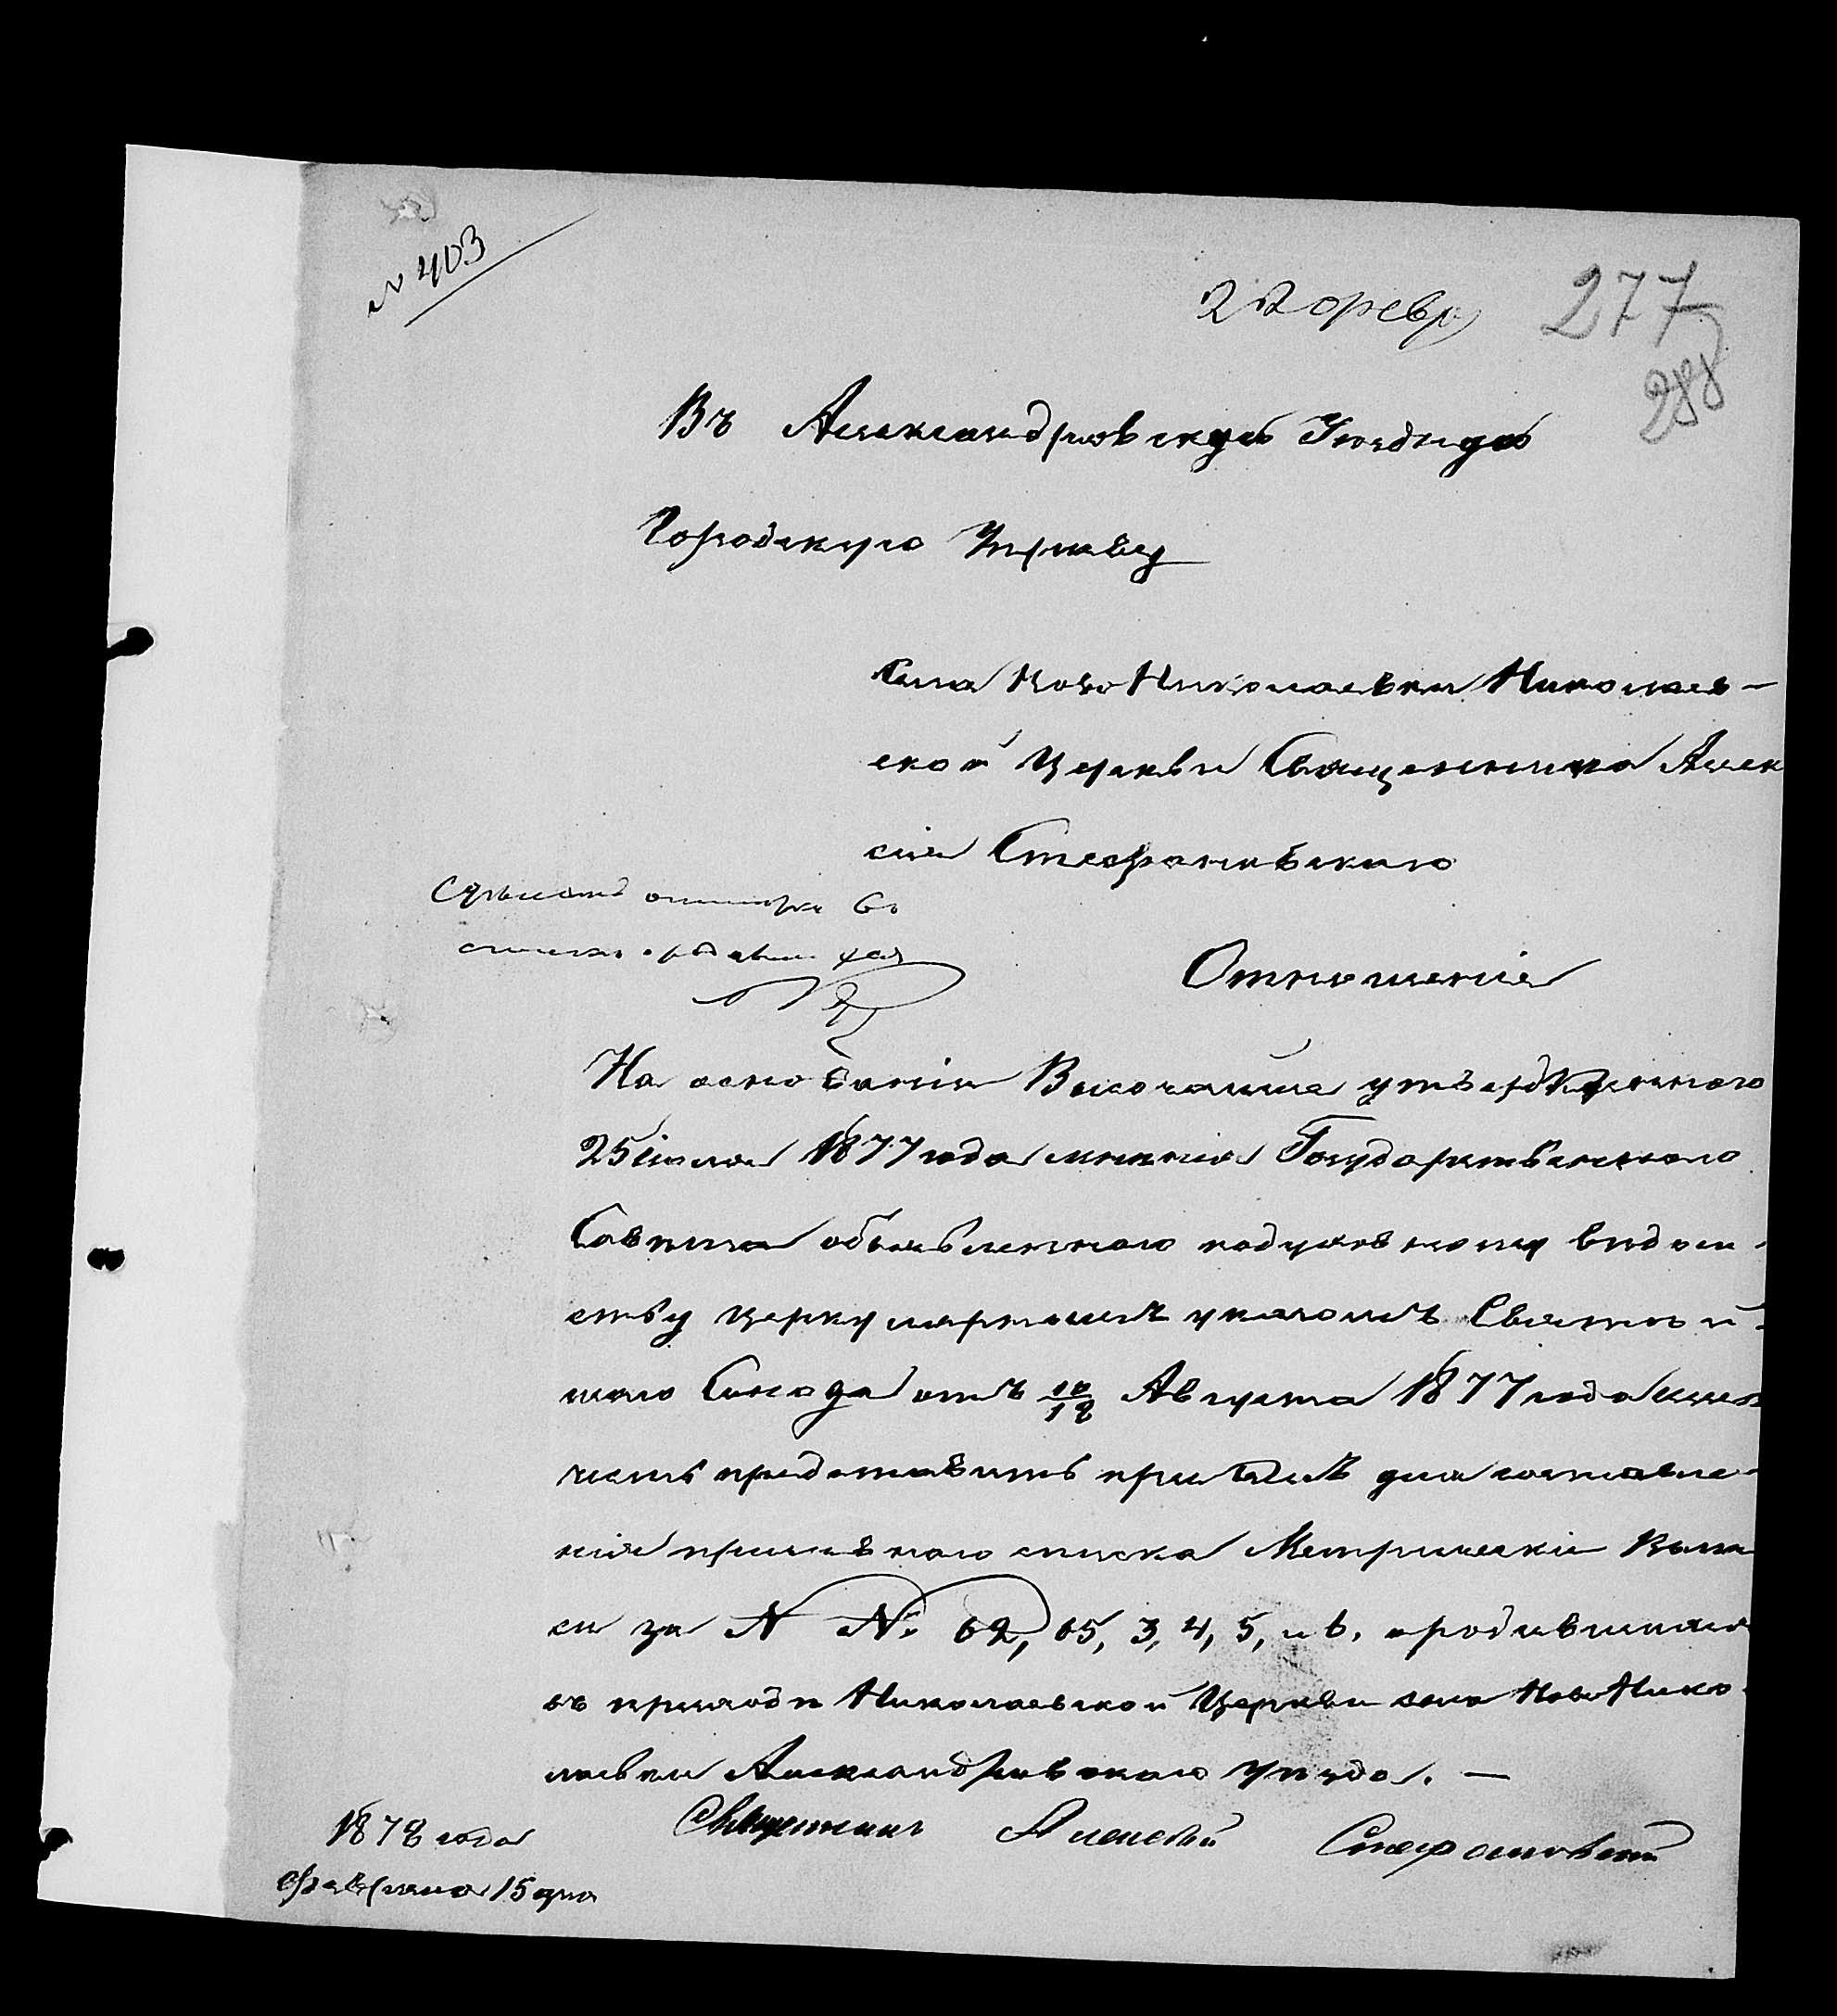 № 403
22 февр
277
288
Въ Александровскую Уездную
Городскую Управу
Села Ново Николаевки Николаев-
ской Церкви Священника Алек
сія Стефановскаго
отметки въ
Отношеніе
На основаніи Высочайше утвержденнаго
25 іюля 1877 года мненія Государственнаго
Совета объявленнаго по духовному ведом-
ству церкулярнымъ указомъ Святей-
шаго Синода отъ 10/12 Августа 1877 года имею
честь представить при семъ для составле-
нія призывнаго списка Метрическіе Выпи
си за N № 62, 65, 3, 4, 5, и 6, о родившихся
въ приходе Николаевской Церкви села НовоНико-
лаевки Александровскаго уезда. —
Священникъ Алексей Стефановскій
1878 года
февраля 15 дня